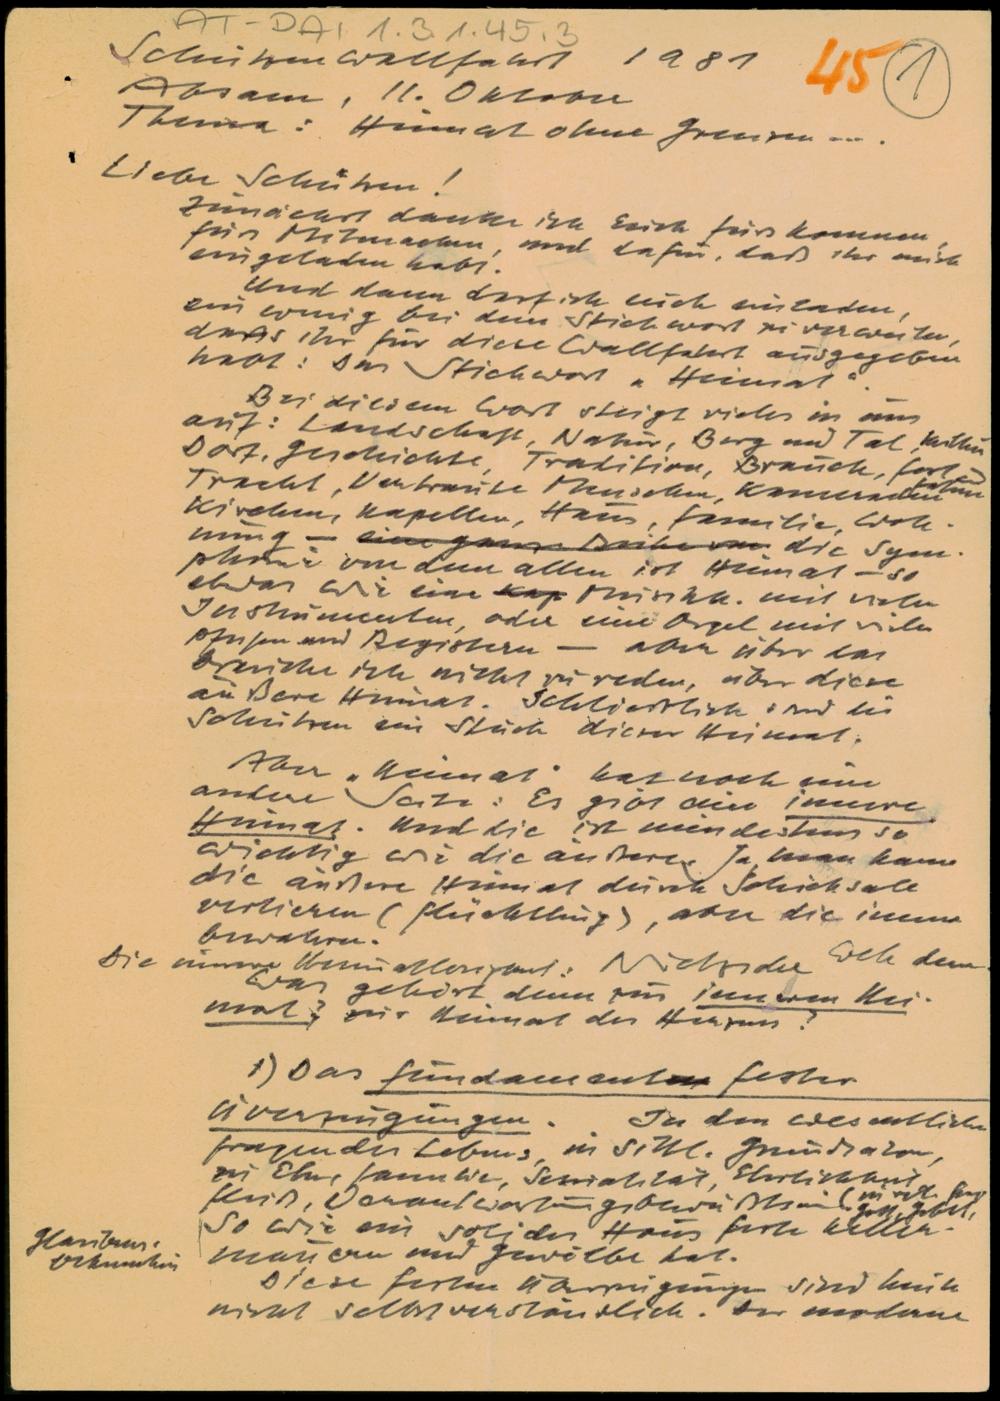 AT-DAI 1.3.1.45.3
45 1
Schützenwallfahrt 1981
Absam, 11. Oktober
Thema: Heimat ohne Grenzen ....
Liebe Schützen!
Zunächst danke ich Euch fürs Kommen,
fürs Mitmachen, und dafür, daß ihr mich
eingeladen habt.
Und dann darf ich euch einladen,
ein wenig bei dem Stichwort zu verweilen,
das ihr für diese Wallfahrt ausgegeben
habt: Das Stichwort "Heimat".
Bei diesem Wort steigt vieles in uns
auf: Landschaft, Natur, Berg und Tal,
Dorf, Geschichte, Tradition, Brauch,
Tracht, Vertraute Menschen, Kameraden
Kirchen, Kapellen, Haus, Familie, Woh-
nung — eine ganze Reihe von die Sym-
phonie von dem allen ist Heimat – so
etwas wie eine Musikk. mit vielen
Instrumenten, oder eine Orgel mit vielen
Pfeifen und Registern — aber über das
brauche ich nicht zu reden, über diese
äußere Heimat. Schließlich sind die
Schützen ein Stück dieser Heimat.
Aber "Heimat" hat noch eine
andere Seite: Es gibt eine innere
Heimat. Und die ist mindestens so
wichtig wie die äußere. Ja, man kann
die äußere Heimat durch Schicksale
verlieren (Flüchtling), aber die innere
bewahren.
Die innere Heimatlosigkeit: Nietzsche Weh dem
Was gehört denn zur inneren Hei-
mat? zur Heimat des Herzens?
1) Das Fundament fester
Überzeugungen. In den wesentlichen
Fragen des Lebens, in sittl. Grundsätzen,
zu Ehe, Familie, Sexualität, Ehrlichkeit,
Fleiß, Verantwortungsbewußtsein (in rel. Frag
Gott, Gebet,
So wie ein solides Haus feste Keller-
mauern und Gewölbe hat.
Glaubens-
Diese festen Überzeugungen sind heute
nicht selbstverständlich. Der moderne